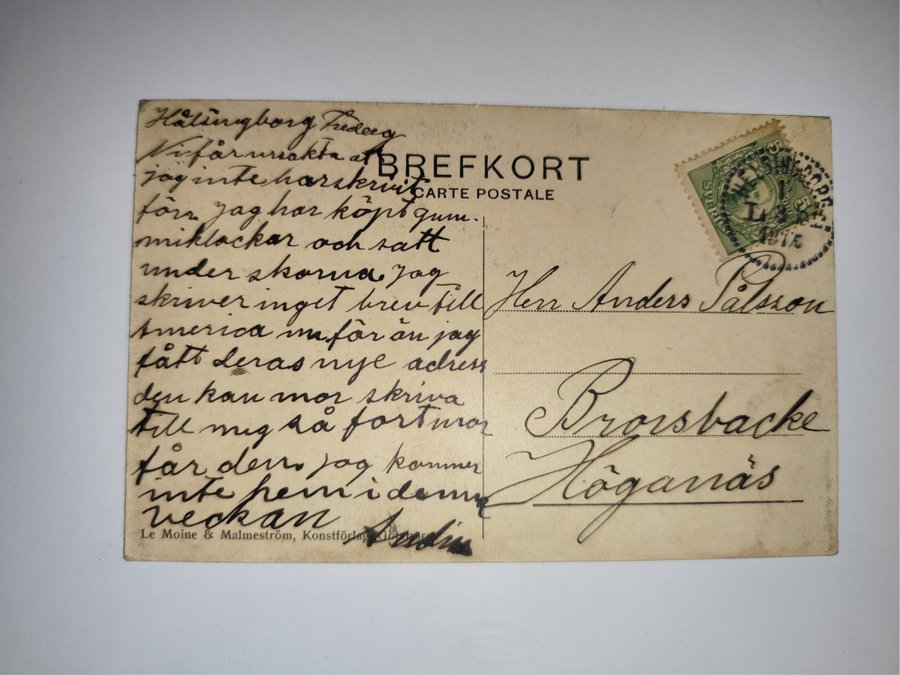 Hälsingborg Fredag
Ni får ursäkta att
jag inte har skrivit
förr jag har köpt gum-
miklackar och satt
under skorna jag
skriver inget brev till
America nu för än jag
fått deras nye adress
den kan mor skriva
till meg så fort mor
får den. jag kommer
inte hem i denna
veckan
BREFKORT
CARTE POSTALE
Herr Anders Pålsson
Brorsbacke
Höganäs
Le Moine & Malmeström, Konstförlag